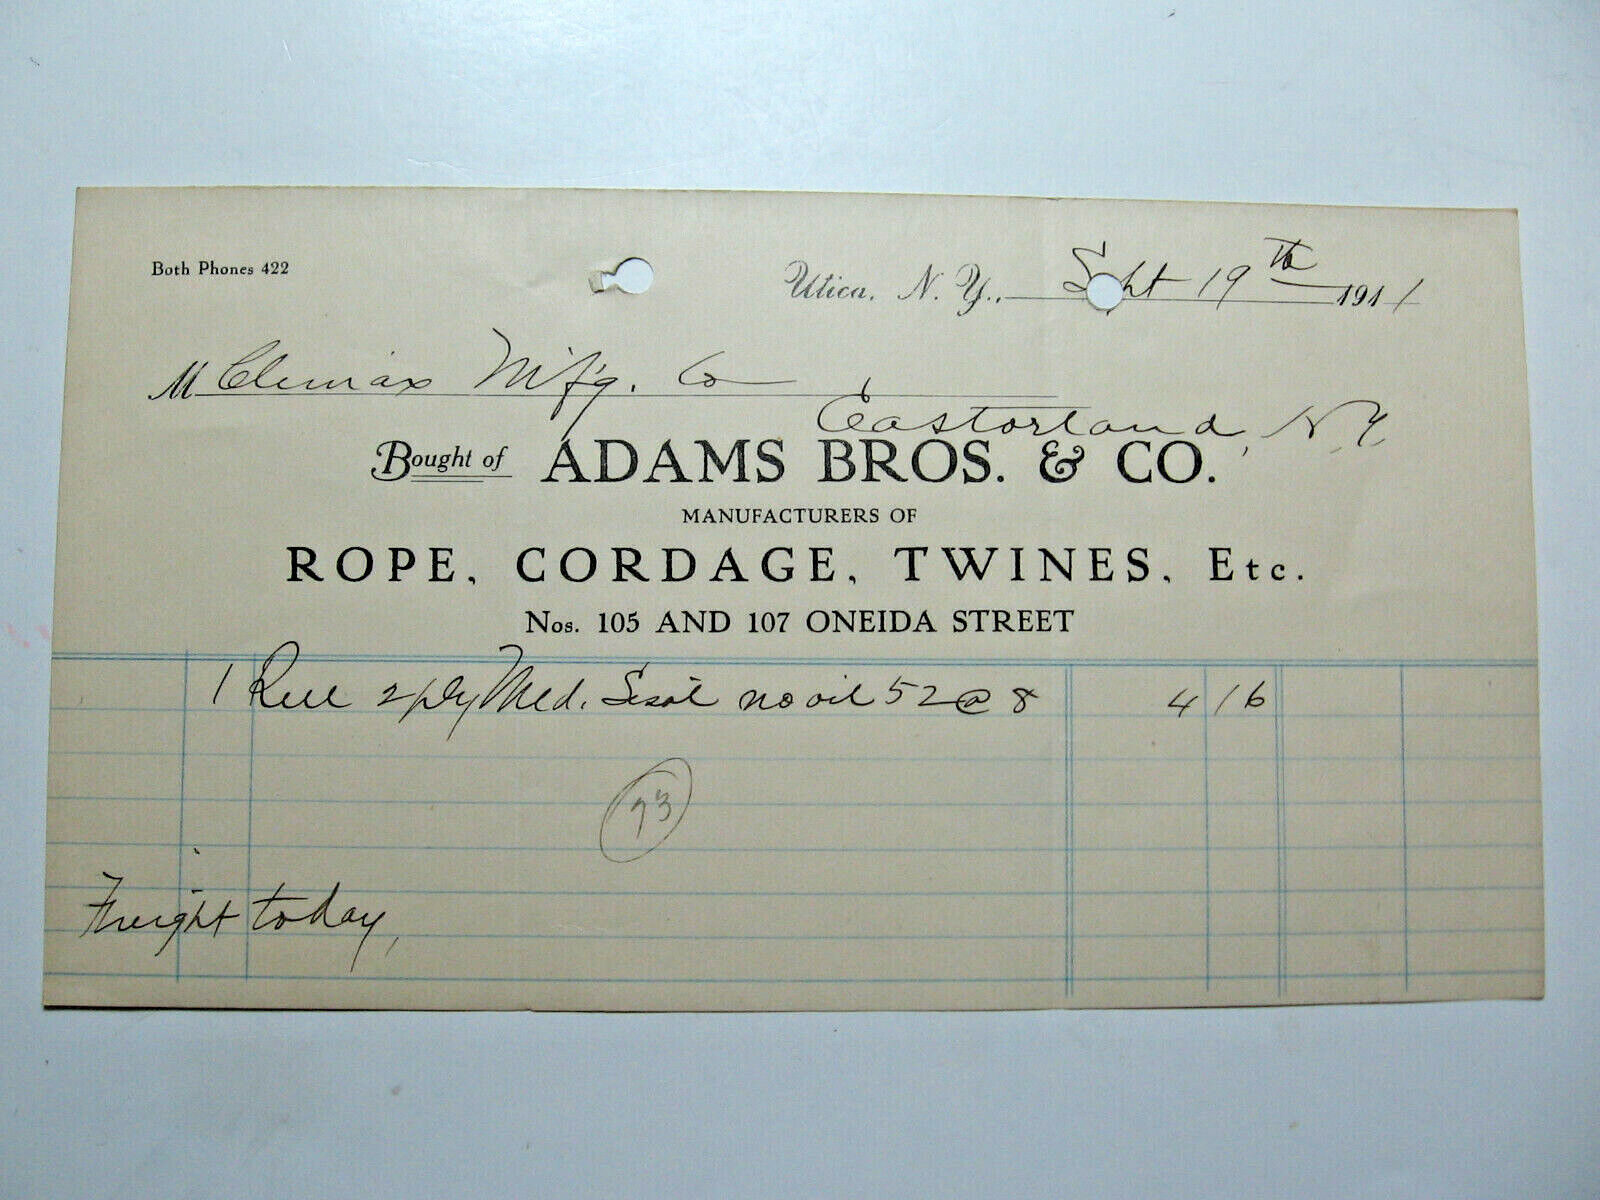 Both Phones 422
Utica, N. Y., Sept 19th 1911
M Climax M'f'g. Co
Castorland, N.Y.
Bought of ADAMS BROS. & CO.
MANUFACTURERS OF
ROPE, CORDAGE, TWINES, Etc.
Nos. 105 AND 107 ONEIDA STREET
1 Reel 2 ply Med. Sisal no oil 52 @ 8 4 16
73
Freight today,